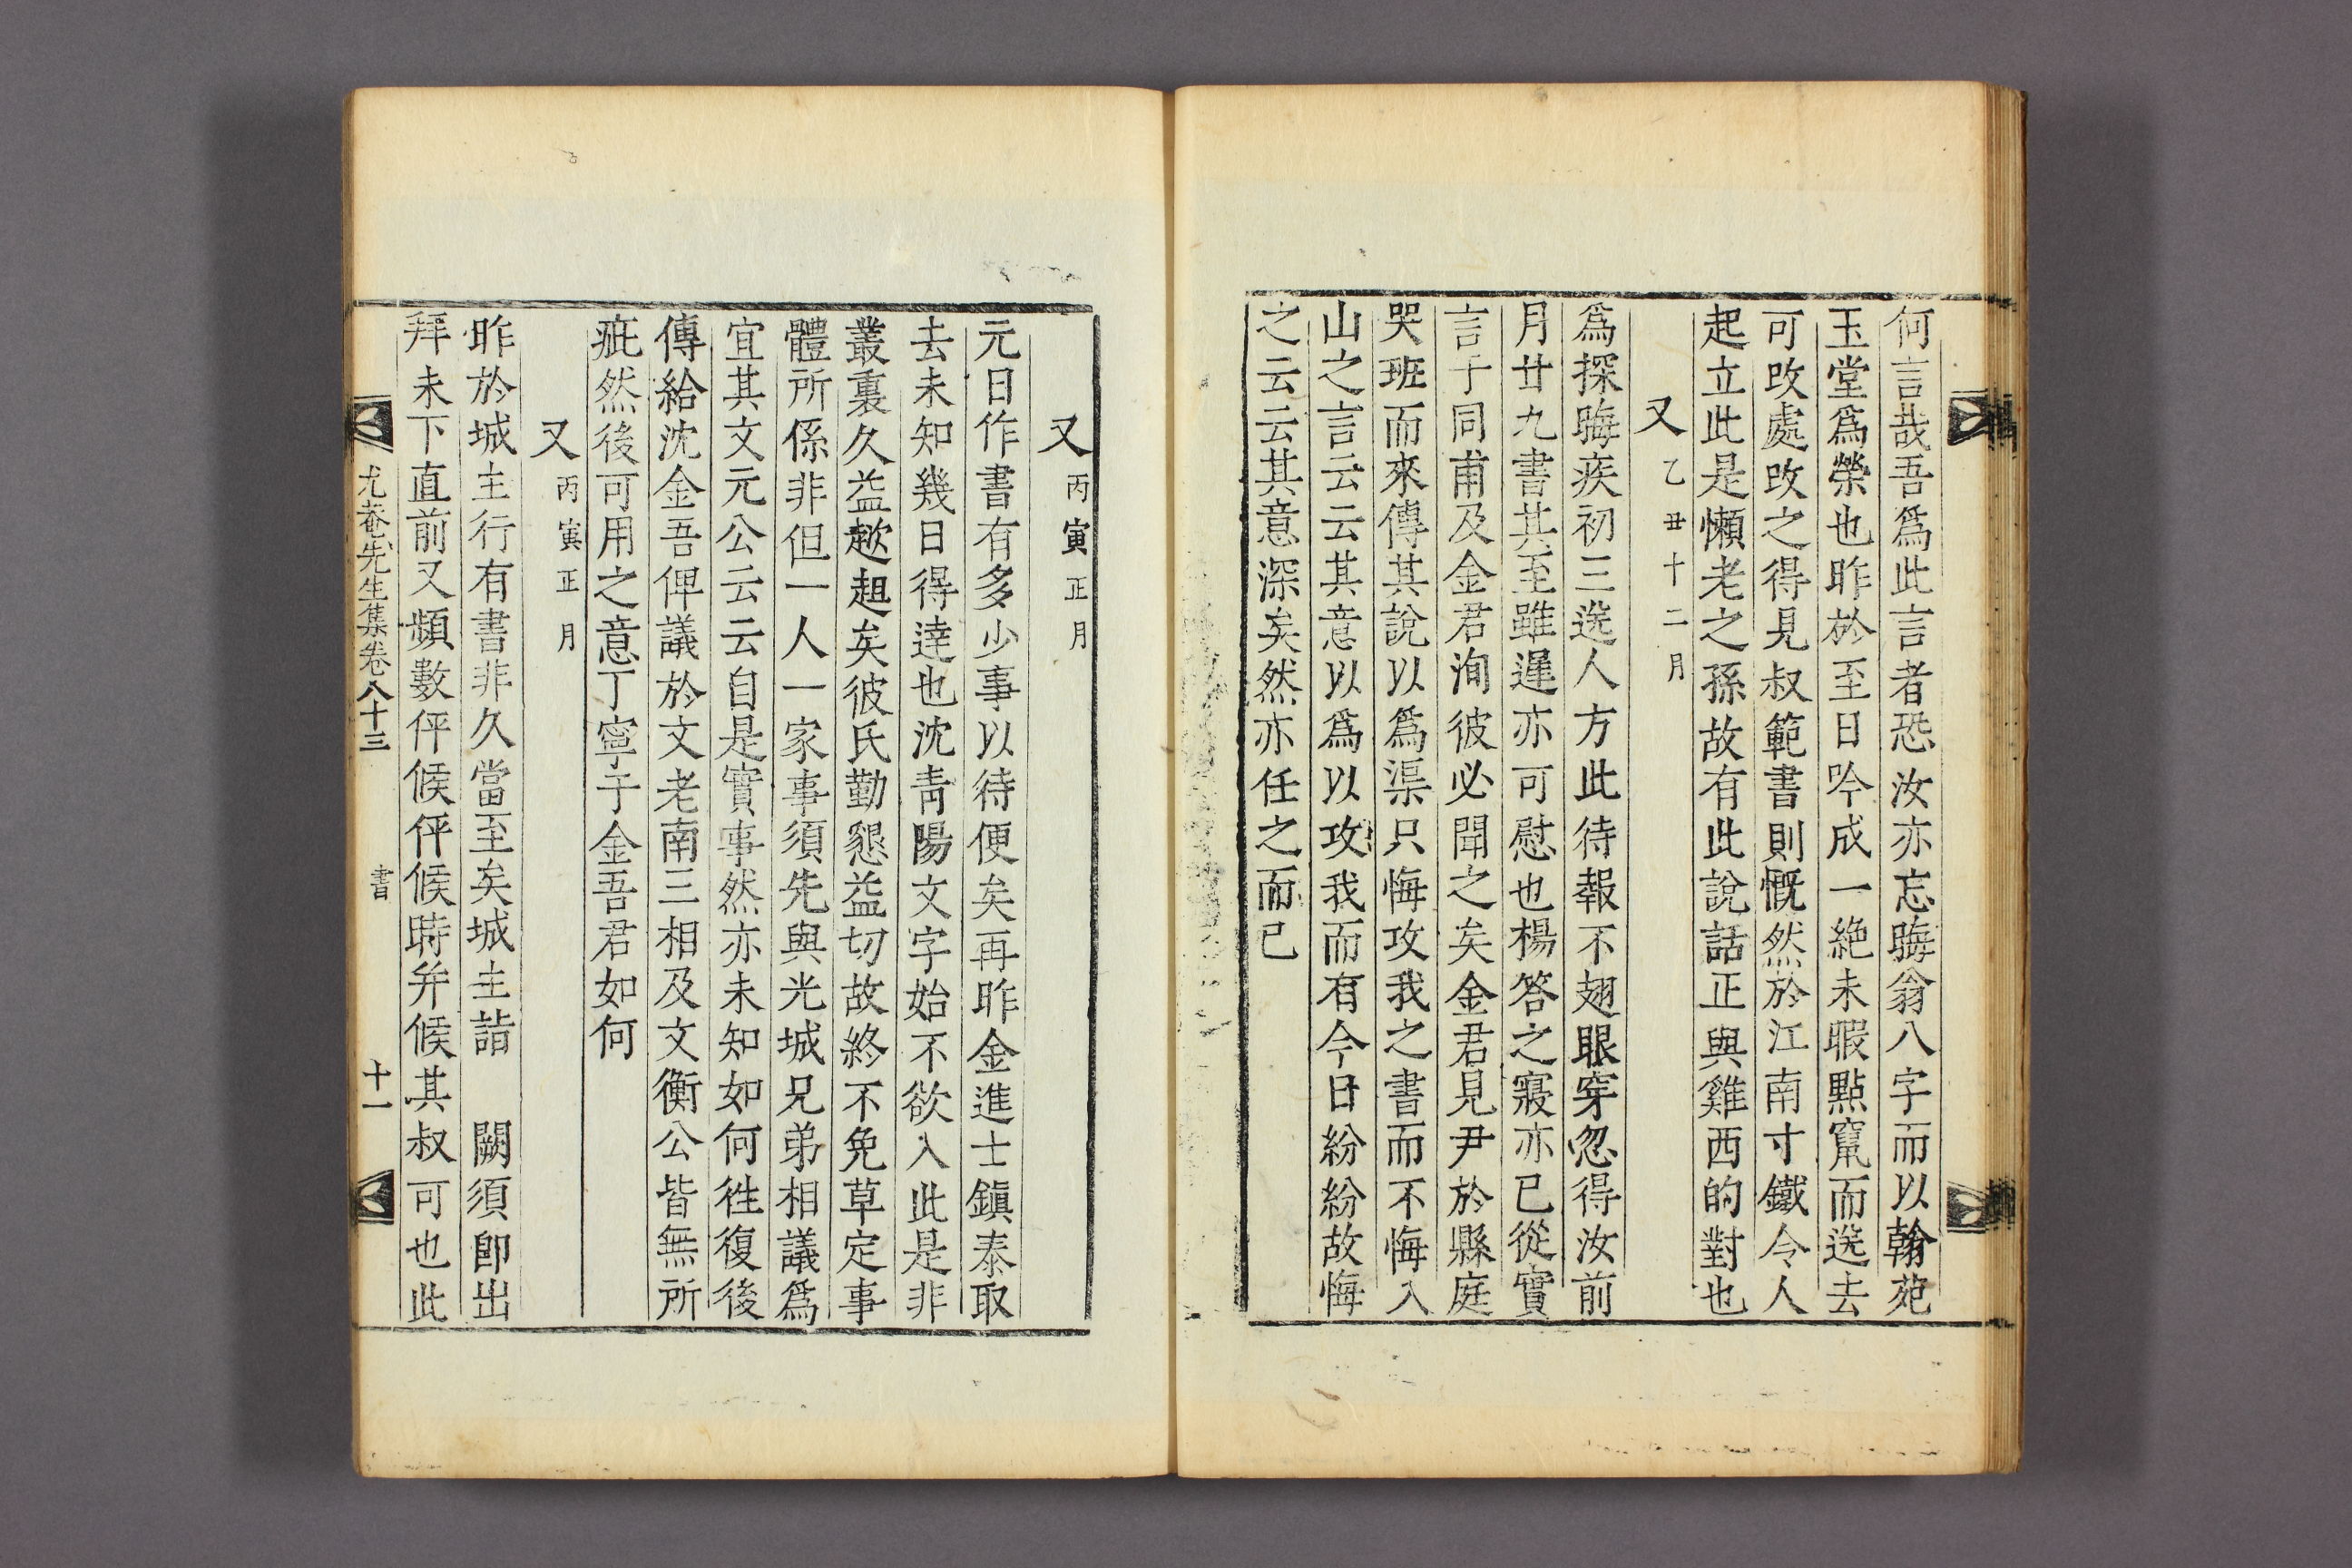 何言哉吾爲此言者恐汝亦忘晦翁八字而以翰苑
玉堂爲榮也昨於至日吟成一絶未暇點竄而送去
可改處改之得見叔範書則慨然於江南寸鐵令人
起立此是懶老之孫故有此說話正與雞西的對也
又 乙丑十二月
爲探晦疾初三送人方此待報不翅眼穿忽得汝前
月廿九書其至雖遲亦可慰也楊答之寢亦已從實
言于同甫及金君洵彼必聞之矣金君見尹於縣庭
哭班而來傳其說以爲渠只悔攻我之書而不悔入
山之言云云其意以爲以攻我而有今日紛紛故悔
之云云其意深矣然亦任之而已
又 丙寅正月
元日作書有多少事以待便矣再昨金進士鎭泰取
去未知幾日得達也沈靑陽文字始不欲入此是非
叢裏久益趑趄矣彼氏勤懇益切故終不免草定事
體所係非但一人一家事須先與光城兄弟相議爲
宜其文元公云云自是實事然亦未知如何徃復後
傳給沈金吾俾議於文老南三相及文衡公皆無所
疵然後可用之意丁寧于金吾君如何
又 丙寅正月
昨於城主行有書非久當至矣城主詣 闕須卽出
拜未下直前又頻數伻候伻候時幷候其叔可也此
尤菴先生集卷八十三 書 十一